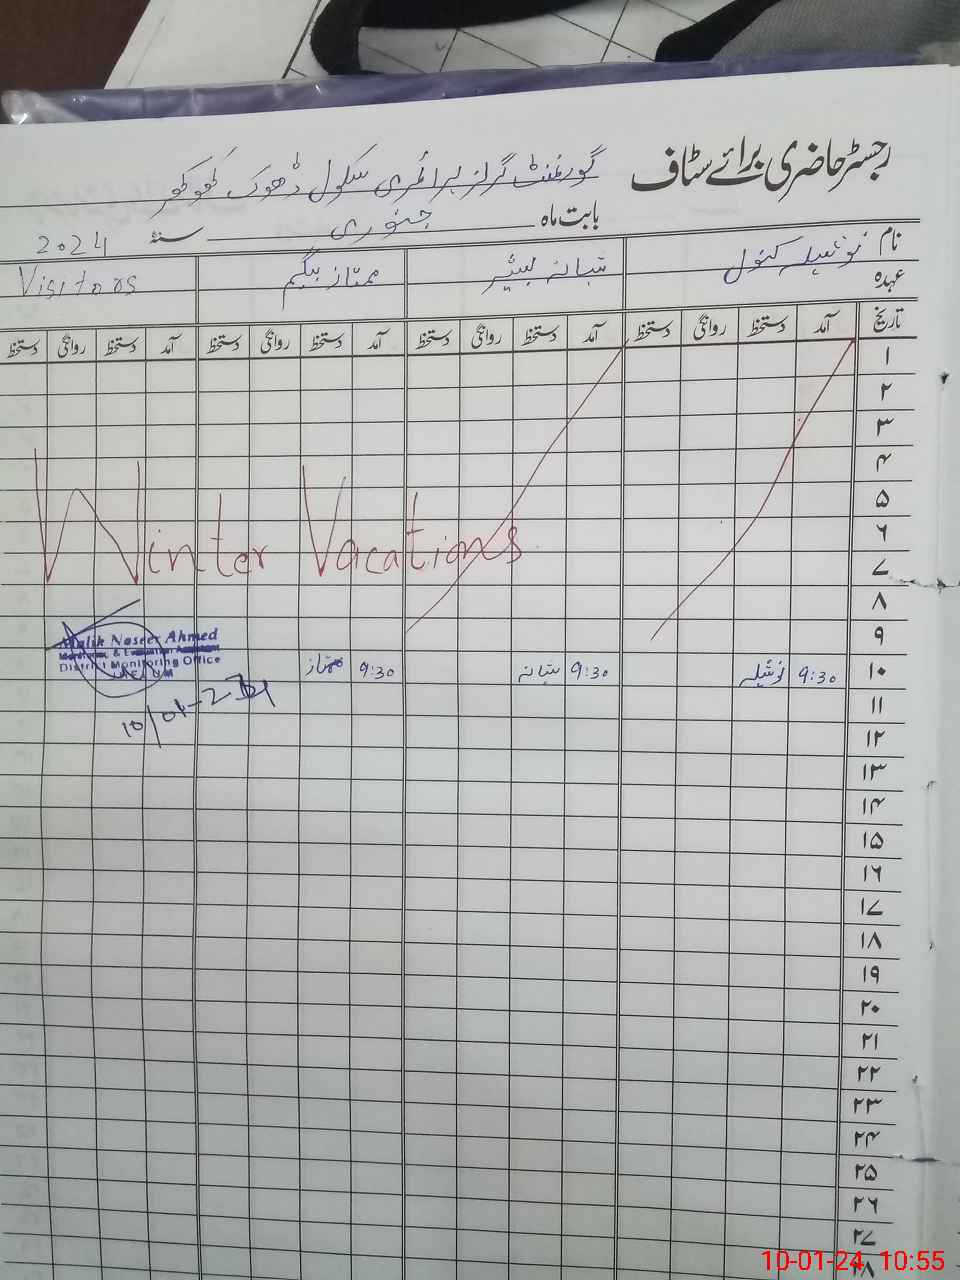 رجسٹر حاضری برائے سٹاف
گورنمنٹ گرلز پرائمری سکول ڈھوک کھوکھر
بابت ماہ جنوری سنہ 2024
نام نوشیلہ کنول شبانہ بشیر ممتاز بیگم Visitors
عہدہ
تاریخ آمد دستخط روانگی دستخط آمد دستخط روانگی دستخط آمد دستخط روانگی دستخط آمد دستخط روانگی دستخط
۱
۲
۳
۴
۵
۶
Winter Vacations
۷
۸
۹
Malik Naseer Ahmed
District Monitoring Office
۱۰ 9:30 نوشیلہ 9:30 شبانہ 9:30 ممتاز
۱۱
۱۲
۱۳
۱۴
۱۵
۱۶
۱۷
۱۸
۱۹
۲۰
۲۱
۲۲
۲۳
۲۴
۲۵
۲۶
۲۷
۲۸
10-01-24 10:55